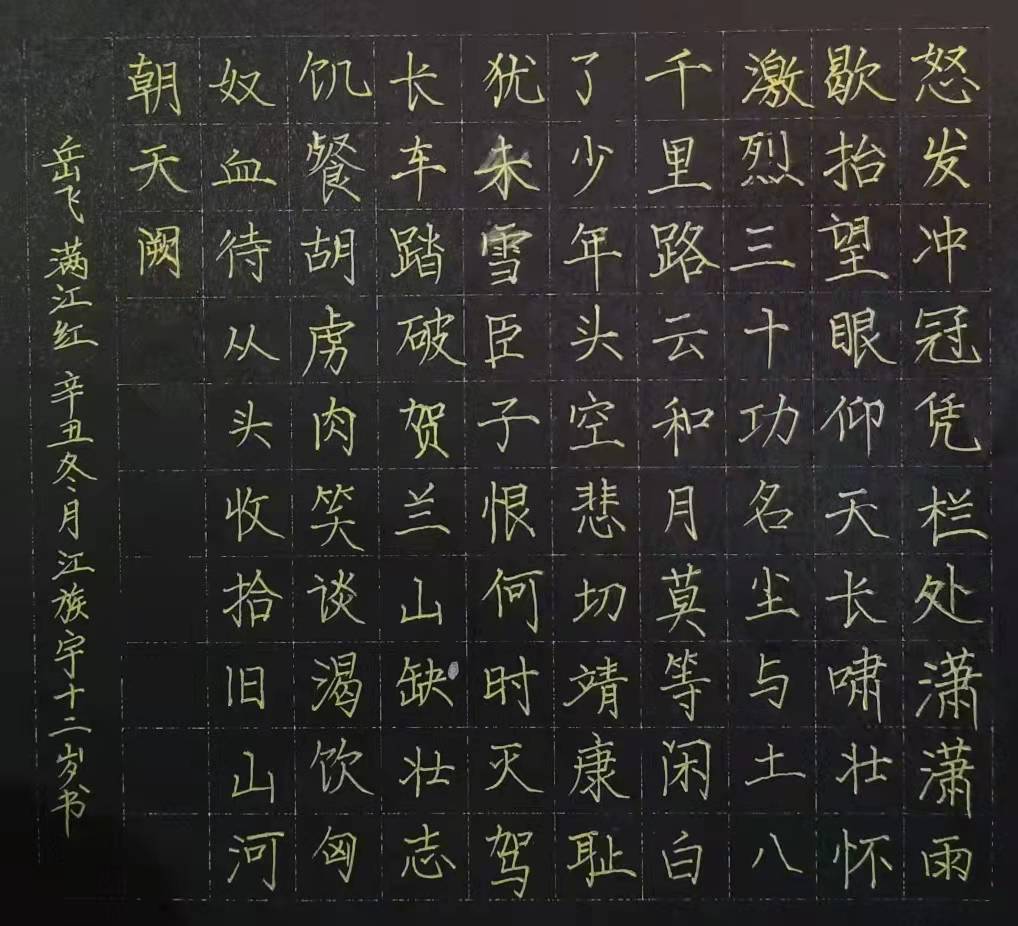 怒发冲冠凭栏处潇潇雨
歇抬望眼仰天长啸壮怀
激烈三十功名尘与土八
千里路云和月莫等闲白
了少年头空悲切靖康耻
犹未雪臣子恨何时灭驾
长车踏破贺兰山缺壮志
饥餐胡虏肉笑谈渴饮匈
奴血待从头收拾旧山河
朝天阙
岳飞满江红辛丑冬月江族宇十二岁书